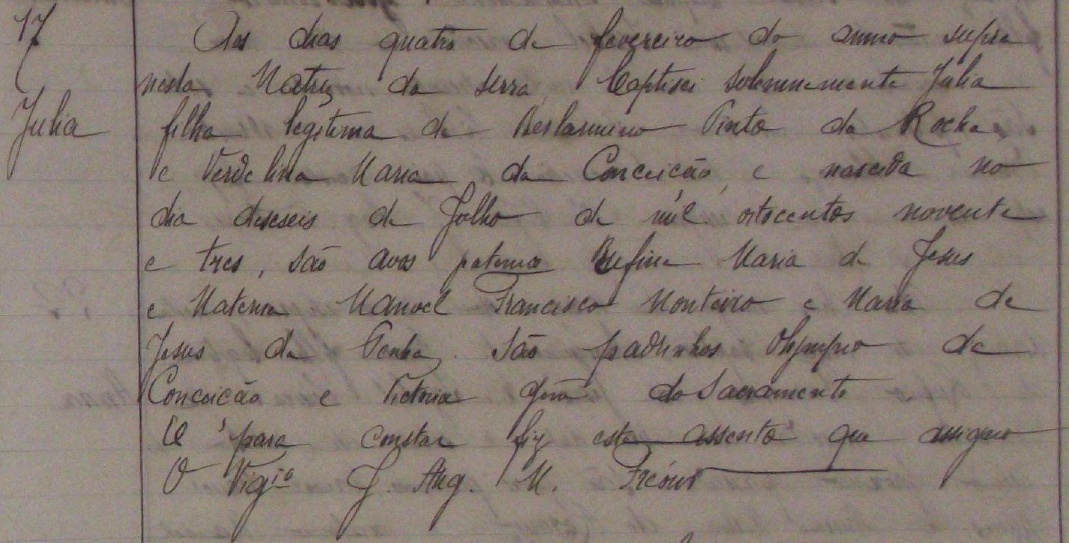 17
Aos dias quatro de fevereiro do anno supra
nesta Matriz da Serra baptisei solemnemente Julia
Julia
filha legitima de Berlarmino Pinto da Rocha
e Verdelina Maria da Conceicão, e nascida no
dia deseseis de Julho de mil oitocentos noventa
e tres, são avos paterna Rufina Maria de Jesus
e Materna Manoel Francisco Monteiro e Maria de
Jesus da Penha. São padrinhos Olympio da
Conceicão e Victoria do Sacramento
E para constar fiz este assento que assigno
O Vigrio J. Aug. M.